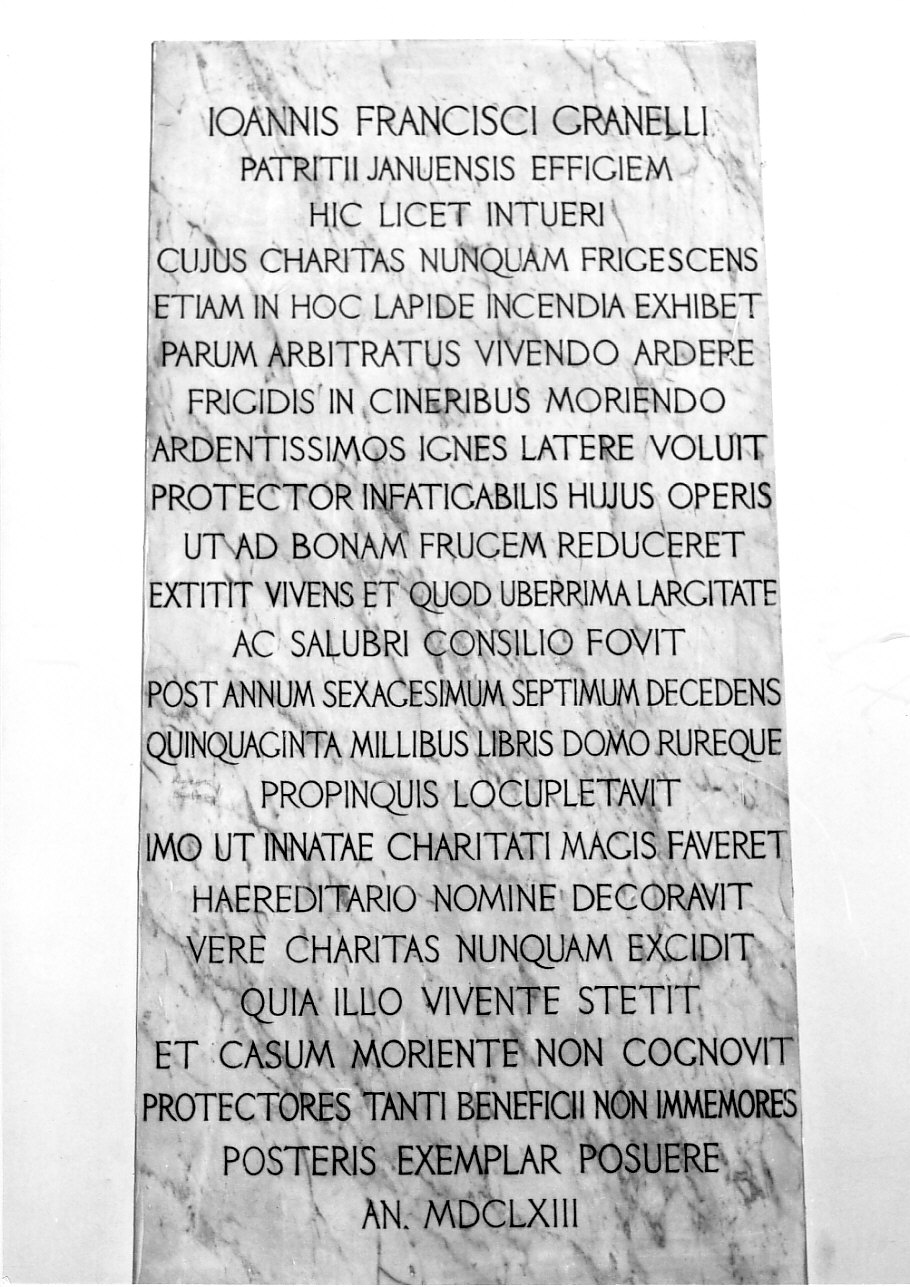 IOANNIS FRANCISCI GRANELLI
PATRITII JANUENSIS EFFIGIEM
HIC LICET INTUERI
CUJUS CHARITAS NUNQUAM FRIGESCENS
ETIAM IN HOC LAPIDE INCENDIA EXHIBET
PARUM ARBITRATUS VIVENDO ARDERE
FRIGIDIS IN CINERIBUS MORIENDO
ARDENTISSIMOS IGNES LATERE VOLUIT
PROTECTOR INFATIGABILIS HUJUS OPERIS
UT AD BONAM FRUGEM REDUCERET
EXTITIT VIVENS ET QUOD UBERRIMA LARGITATE
AC SALUBRI CONSILIO FOVIT
POST ANNUM SEXAGESIMUM SEPTIMUM DECEDENS
QUINQUAGINTA MILLIBUS LIBRIS DOMO RUREQUE
PROPINQUIS LOCUPLETAVIT
IMO UT INNATAE CHARITATI MAGIS FAVERET
HAEREDITARIO NOMINE DECORAVIT
VERE CHARITAS NUNQUAM EXCIDIT
QUIA ILLO VIVENTE STETIT
ET CASUM MORIENTE NON COGNOVIT
PROTECTORES TANTI BENEFICII NON IMMEMORES
POSTERIS EXEMPLAR POSUERE
AN. MDCLXIII